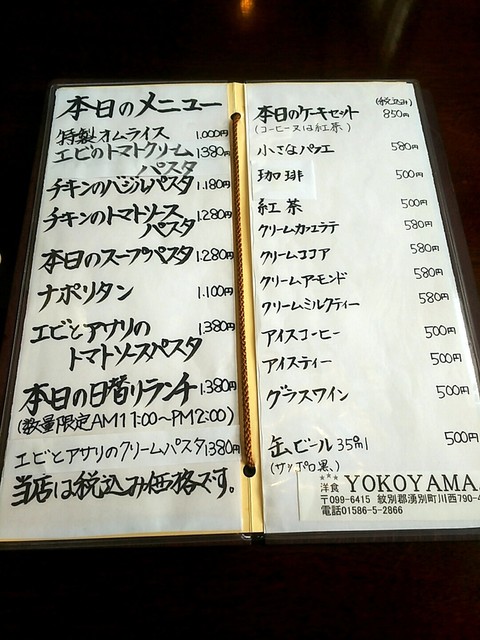 本日のメニュー
特製オムライス 1.000円
エビのトマトクリーム 1380円
パスタ
チキンのバジルパスタ 1.180円
チキンのトマトソース 1.280円
パスタ
本日のスープパスタ 1.280円
ナポリタン 1.100円
エビとアサリの 1.380円
トマトソースパスタ
本日の日替りランチ 1.380円
(数量限定AM11:00~PM2:00)
エビとアサリのクリームパスタ 1380円
当店は税込み価格です。
(税込み)
本日のケーキセット 850円
(コーヒー又は紅茶)
小さなパフェ 580円
珈琲 500円
紅茶 500円
クリームカフェラテ 580円
クリームココア 580円
クリームアーモンド 580円
クリームミルクティー 580円
アイスコーヒー 500円
アイスティー 500円
グラスワイン 500円
缶ビール 350ml 500円
(サッポロ黒)
洋食 YOKOYAMA
〒099-6415 紋別郡湧別町川西790-4
電話01586-5-2866